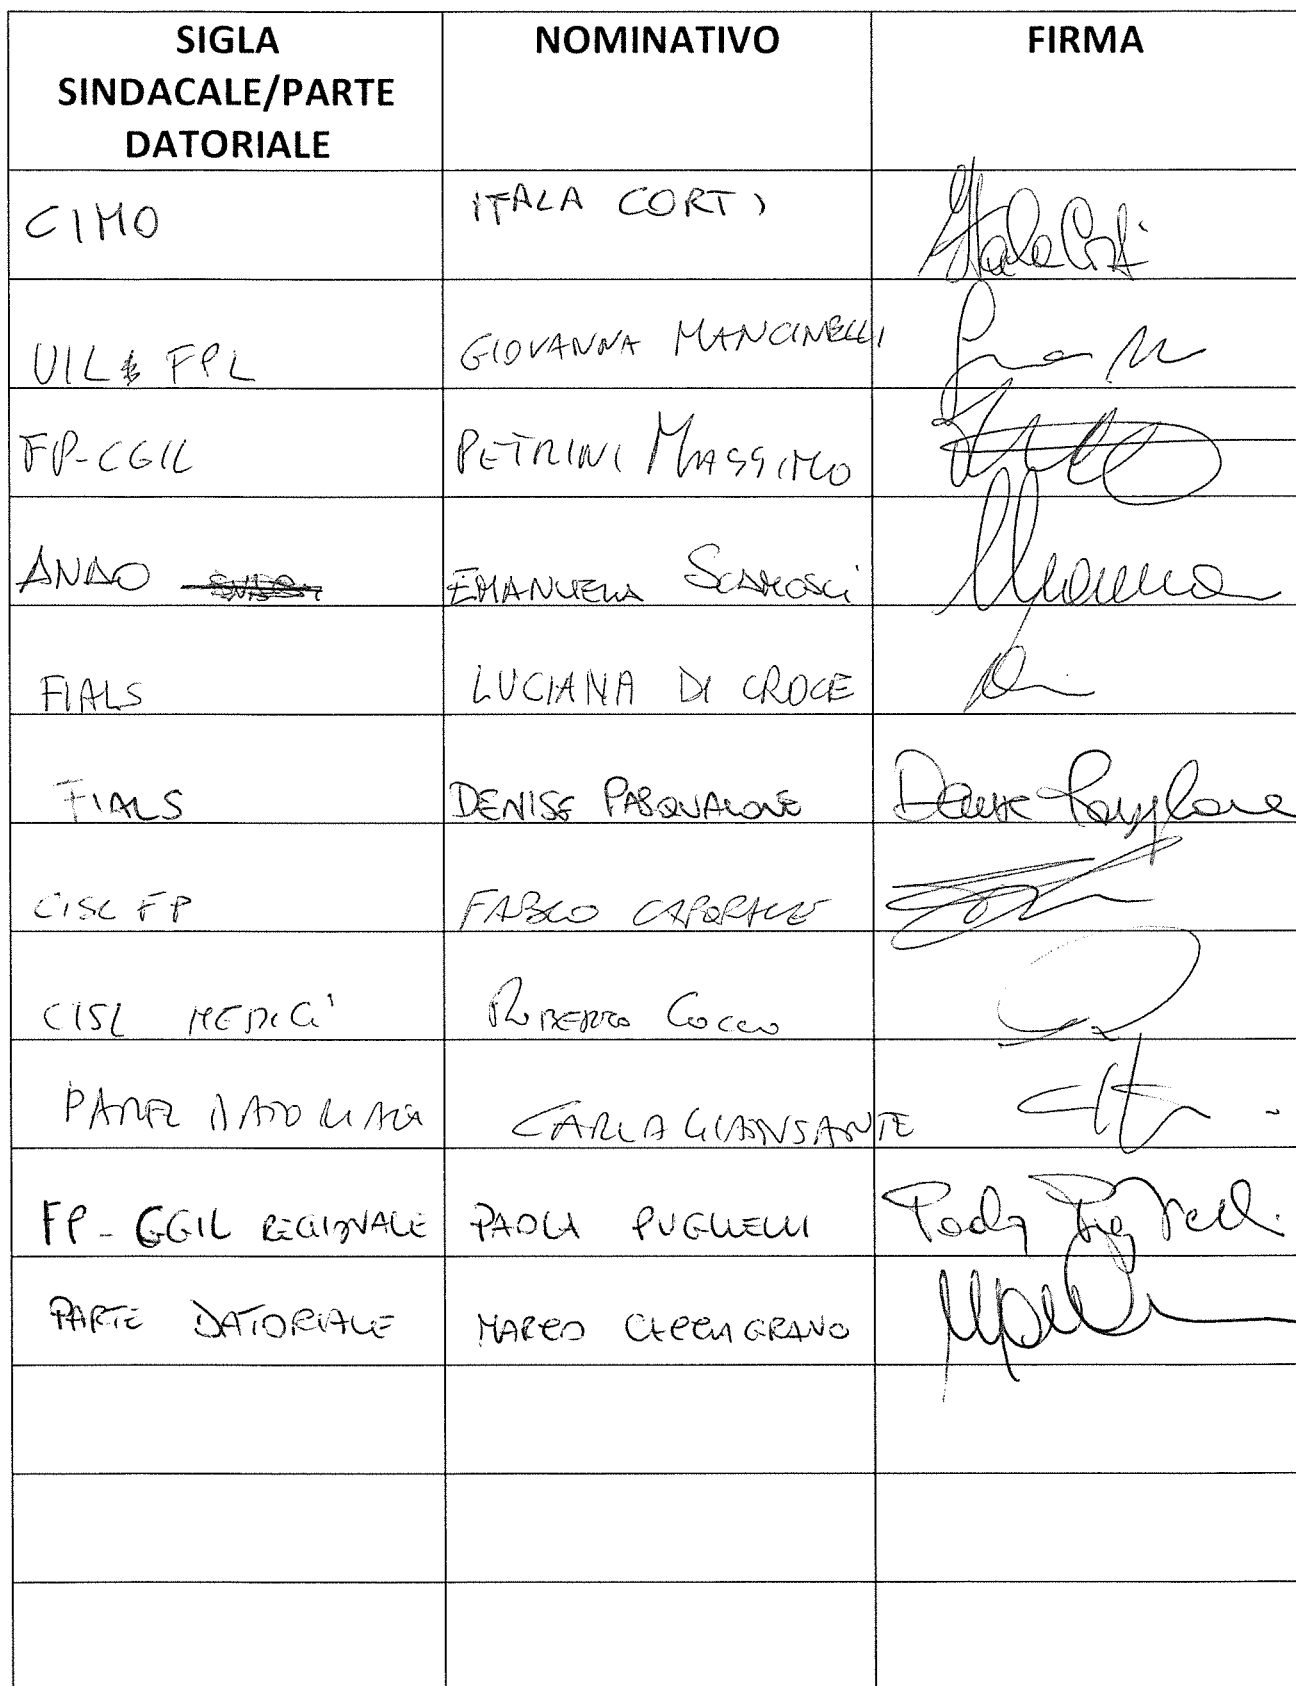 SIGLA
SINDACALE/PARTE
DATORIALE
NOMINATIVO
FIRMA
CIMO ITALA CORTI Itala Corti
UIL FPL GIOVANNA MANCINELLI
FP-CGIL PETRINI MASSIMO
ANAAO EMANUELA
FIALS LUCIANA DI CROCE
FIALS DENISE PASQUALONE Denise Pasqualone
CISL FP FABIO CAPORALE
CISL MEDICI ROBERTO COCCO
PARTE DATORIALE CARLA GIANSANTE
FP-CGIL REGIONALE PAOLA PUGLIELLI Paola Puglielli
PARTE DATORIALE MARCO